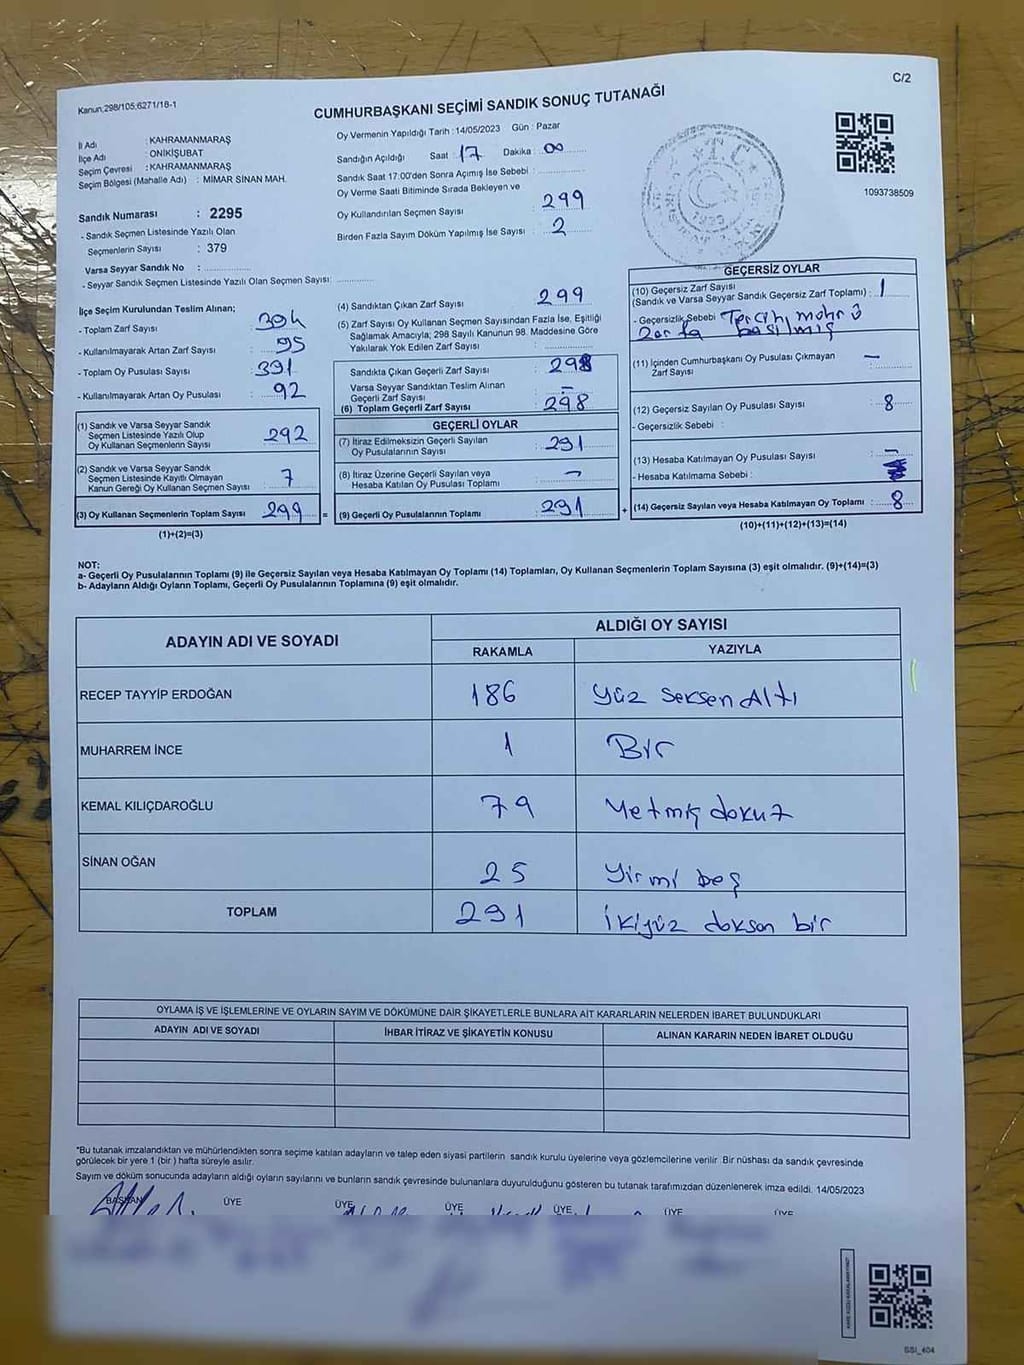 C/2
Kanun:298/105;6271/18-1
CUMHURBAŞKANI SEÇİMİ SANDIK SONUÇ TUTANAĞI
İl Adı : KAHRAMANMARAŞ
İlçe Adı : ONİKİŞUBAT
Seçim Çevresi : KAHRAMANMARAŞ
Seçim Bölgesi (Mahalle Adı) : MİMAR SİNAN MAH.
Sandık Numarası : 2295
- Sandık Seçmen Listesinde Yazılı Olan
Seçmenlerin Sayısı : 379
Varsa Seyyar Sandık No :
- Seyyar Sandık Seçmen Listesinde Yazılı Olan Seçmen Sayısı:
Oy Vermenin Yapıldığı Tarih : 14/05/2023 Gün : Pazar
Sandığın Açıldığı Saat : 17 Dakika : 00
Sandık Saat 17:00'den Sonra Açımış İse Sebebi :
Oy Verme Saati Bitiminde Sırada Bekleyen ve
Oy Kullandırılan Seçmen Sayısı : 299
Birden Fazla Sayım Döküm Yapılmış İse Sayısı : 2
1093738509
İlçe Seçim Kurulundan Teslim Alınan;
- Toplam Zarf Sayısı : 394
- Kullanılmayarak Artan Zarf Sayısı : 95
- Toplam Oy Pusulası Sayısı : 391
- Kullanılmayarak Artan Oy Pusulası : 92
(1) Sandık ve Varsa Seyyar Sandık
Seçmen Listesinde Yazılı Olup
Oy Kullanan Seçmenlerin Sayısı : 292
(2) Sandık ve Varsa Seyyar Sandık
Seçmen Listesinde Kayıtlı Olmayan
Kanun Gereği Oy Kullanan Seçmen Sayısı : 7
(3) Oy Kullanan Seçmenlerin Toplam Sayısı : 299 =
(1)+(2)=(3)
(4) Sandıktan Çıkan Zarf Sayısı : 299
(5) Zarf Sayısı Oy Kullanan Seçmen Sayısından Fazla İse, Eşitliği
Sağlamak Amacıyla; 298 Sayılı Kanunun 98. Maddesine Göre
Yakılarak Yok Edilen Zarf Sayısı :
Sandıkta Çıkan Geçerli Zarf Sayısı : 298
Varsa Seyyar Sandıktan Teslim Alınan
Geçerli Zarf Sayısı : -
(6) Toplam Geçerli Zarf Sayısı : 298
GEÇERLİ OYLAR
(7) İtiraz Edilmeksizin Geçerli Sayılan
Oy Pusulalarının Sayısı : 291
(8) İtiraz Üzerine Geçerli Sayılan veya
Hesaba Katılan Oy Pusulası Toplamı : -
(9) Geçerli Oy Pusulalarının Toplamı : 291 +
GEÇERSİZ OYLAR
(10) Geçersiz Zarf Sayısı
(Sandık ve Varsa Seyyar Sandık Geçersiz Zarf Toplamı) : 1
- Geçersizlik Sebebi : Tercih mührü
zarfa basılmış
(11) İçinden Cumhurbaşkanı Oy Pusulası Çıkmayan
Zarf Sayısı : -
(12) Geçersiz Sayılan Oy Pusulası Sayısı : 8
- Geçersizlik Sebebi :
(13) Hesaba Katılmayan Oy Pusulası Sayısı : -
- Hesaba Katılmama Sebebi :
(14) Geçersiz Sayılan veya Hesaba Katılmayan Oy Toplamı : 8
(10)+(11)+(12)+(13)=(14)
NOT:
a- Geçerli Oy Pusulalarının Toplamı (9) ile Geçersiz Sayılan veya Hesaba Katılmayan Oy Toplamı (14) Toplamları, Oy Kullanan Seçmenlerin Toplam Sayısına (3) eşit olmalıdır. (9)+(14)=(3)
b- Adayların Aldığı Oyların Toplamı, Geçerli Oy Pusulalarının Toplamına (9) eşit olmalıdır.
ADAYIN ADI VE SOYADI
ALDIĞI OY SAYISI
RAKAMLA YAZIYLA
RECEP TAYYİP ERDOĞAN 186 Yüz Seksen Altı
MUHARREM İNCE 1 Bir
KEMAL KILIÇDAROĞLU 79 Yetmiş dokuz
SİNAN OĞAN 25 Yirmi beş
TOPLAM 291 İkiyüz doksan bir
OYLAMA İŞ VE İŞLEMLERİNE VE OYLARIN SAYIM VE DÖKÜMÜNE DAİR ŞİKAYETLERLE BUNLARA AİT KARARLARIN NELERDEN İBARET BULUNDUKLARI
ADAYIN ADI VE SOYADI İHBAR İTİRAZ VE ŞİKAYETİN KONUSU ALINAN KARARIN NEDEN İBARET OLDUĞU
*Bu tutanak imzalandıktan ve mühürlendikten sonra seçime katılan adayların ve talep eden siyasi partilerin sandık kurulu üyelerine veya gözlemcilerine verilir .Bir nüshası da sandık çevresinde
görülecek bir yere 1 (bir ) hafta süreyle asılır.
Sayım ve döküm sonucunda adayların aldığı oyların sayılarını ve bunların sandık çevresinde bulunanlara duyurulduğunu gösteren bu tutanak tarafımızdan düzenlenerek imza edildi. 14/05/2023
BAŞKAN ÜYE ÜYE ÜYE ÜYE ÜYE ÜYE
SSI_404